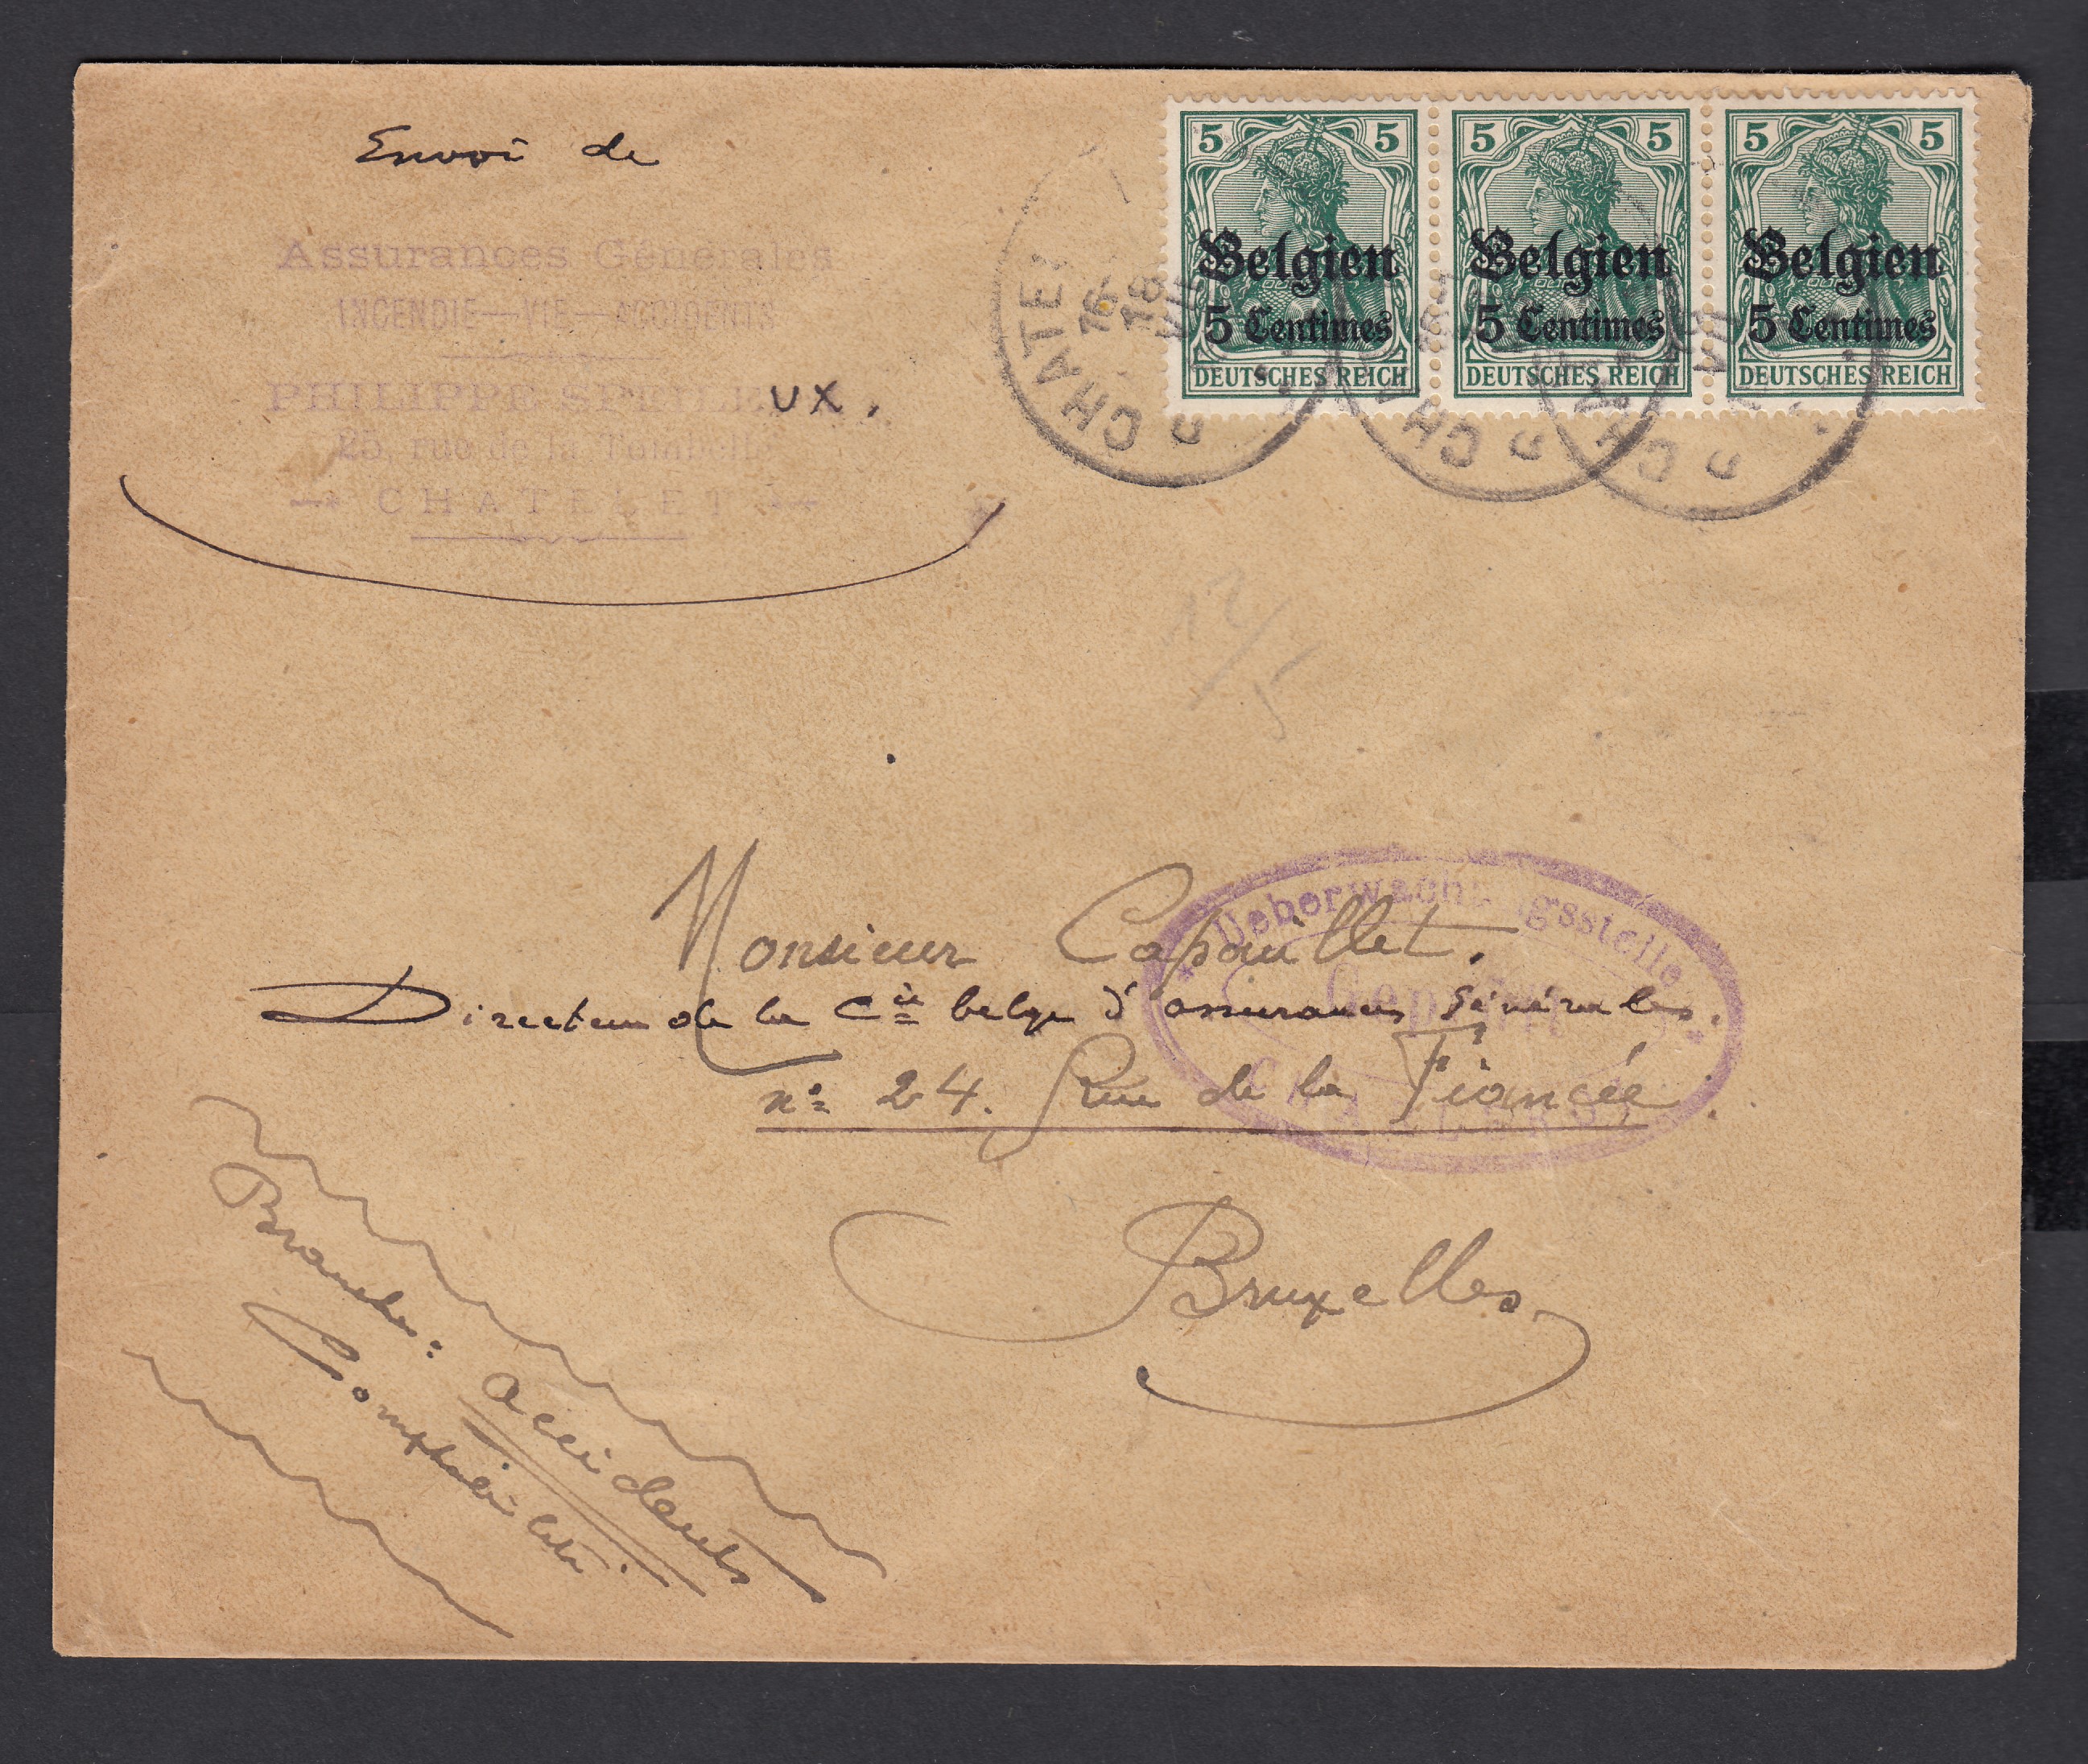 Envoi de
Assurances Générales
INCENDIE—VIE—ACCIDENTS
PHILIPPE UX.
25, rue de la
CHATELET
5 5
Belgien
5 Centimes
DEUTSCHES REICH
5 5
Belgien
5 Centimes
DEUTSCHES REICH
5 5
Belgien
5 Centimes
DEUTSCHES REICH
CHATE
12/5
Ueberwachungsstelle
Monsieur Capouillet.
Directeur de la Cie belge d'assurances Générales.
n° 24. Rue de la Fiancée.
Bruxelles
Branche: accidents
Comptabilité.